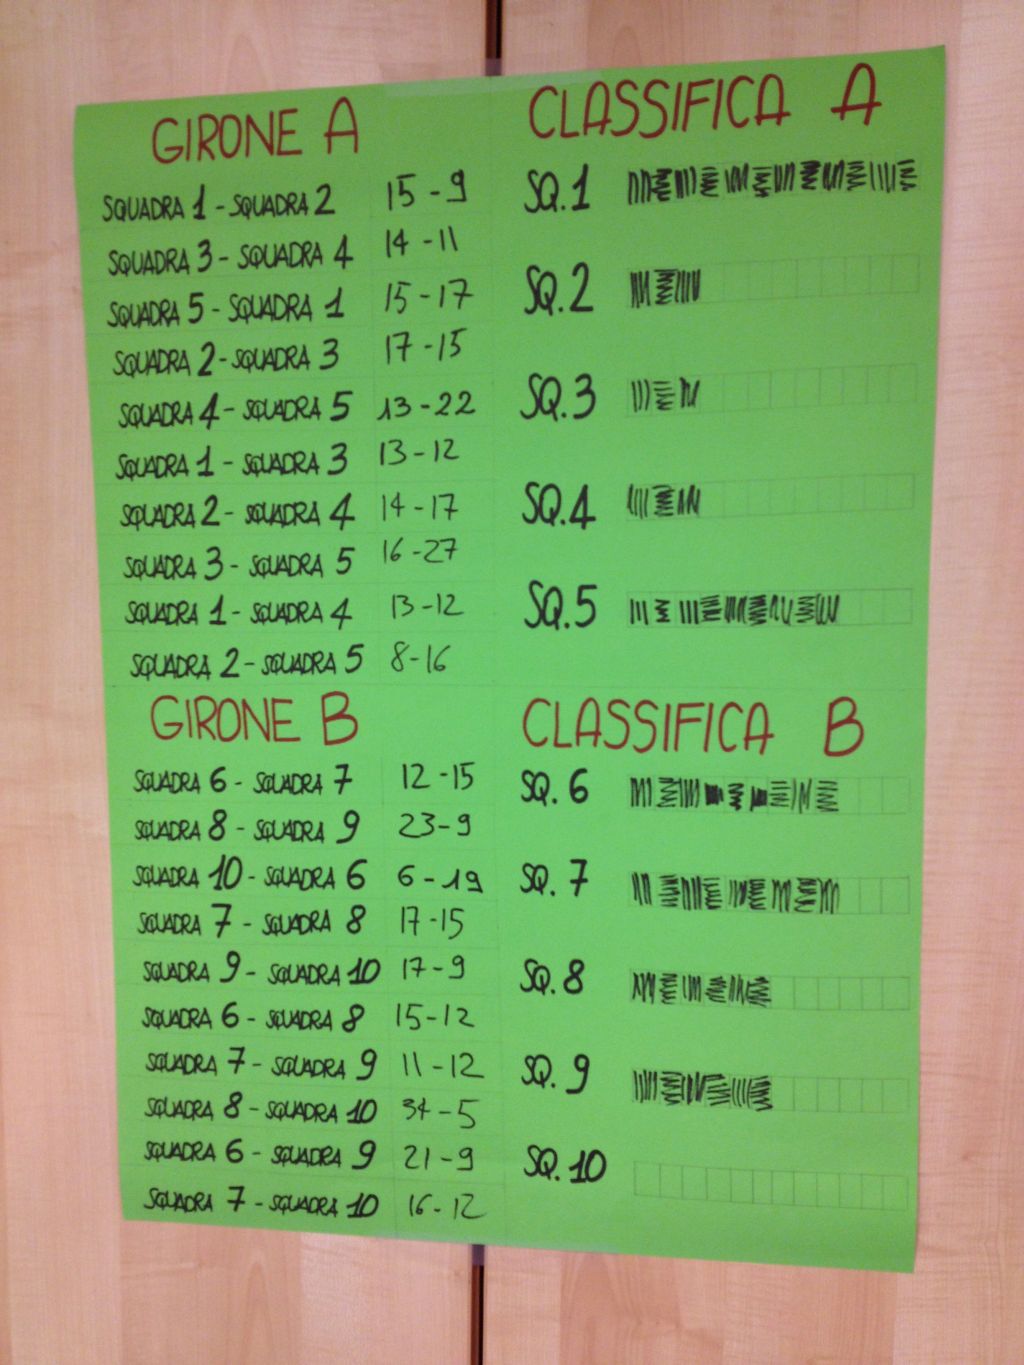 GIRONE A
SQUADRA 1 - SQUADRA 2 15 - 9
SQUADRA 3 - SQUADRA 4 14 - 11
SQUADRA 5 - SQUADRA 1 15 - 17
SQUADRA 2 - SQUADRA 3 17 - 15
SQUADRA 4 - SQUADRA 5 13 - 22
SQUADRA 1 - SQUADRA 3 13 - 12
SQUADRA 2 - SQUADRA 4 14 - 17
SQUADRA 3 - SQUADRA 5 16 - 27
SQUADRA 1 - SQUADRA 4 13 - 12
SQUADRA 2 - SQUADRA 5 8 - 16
CLASSIFICA A
SQ. 1
SQ. 2
SQ. 3
SQ. 4
SQ. 5
GIRONE B
SQUADRA 6 - SQUADRA 7 12 - 15
SQUADRA 8 - SQUADRA 9 23 - 9
SQUADRA 10 - SQUADRA 6 6 - 19
SQUADRA 7 - SQUADRA 8 17 - 15
SQUADRA 9 - SQUADRA 10 17 - 9
SQUADRA 6 - SQUADRA 8 15 - 12
SQUADRA 7 - SQUADRA 9 11 - 12
SQUADRA 8 - SQUADRA 10 34 - 5
SQUADRA 6 - SQUADRA 9 21 - 9
SQUADRA 7 - SQUADRA 10 16 - 12
CLASSIFICA B
SQ. 6
SQ. 7
SQ. 8
SQ. 9
SQ. 10